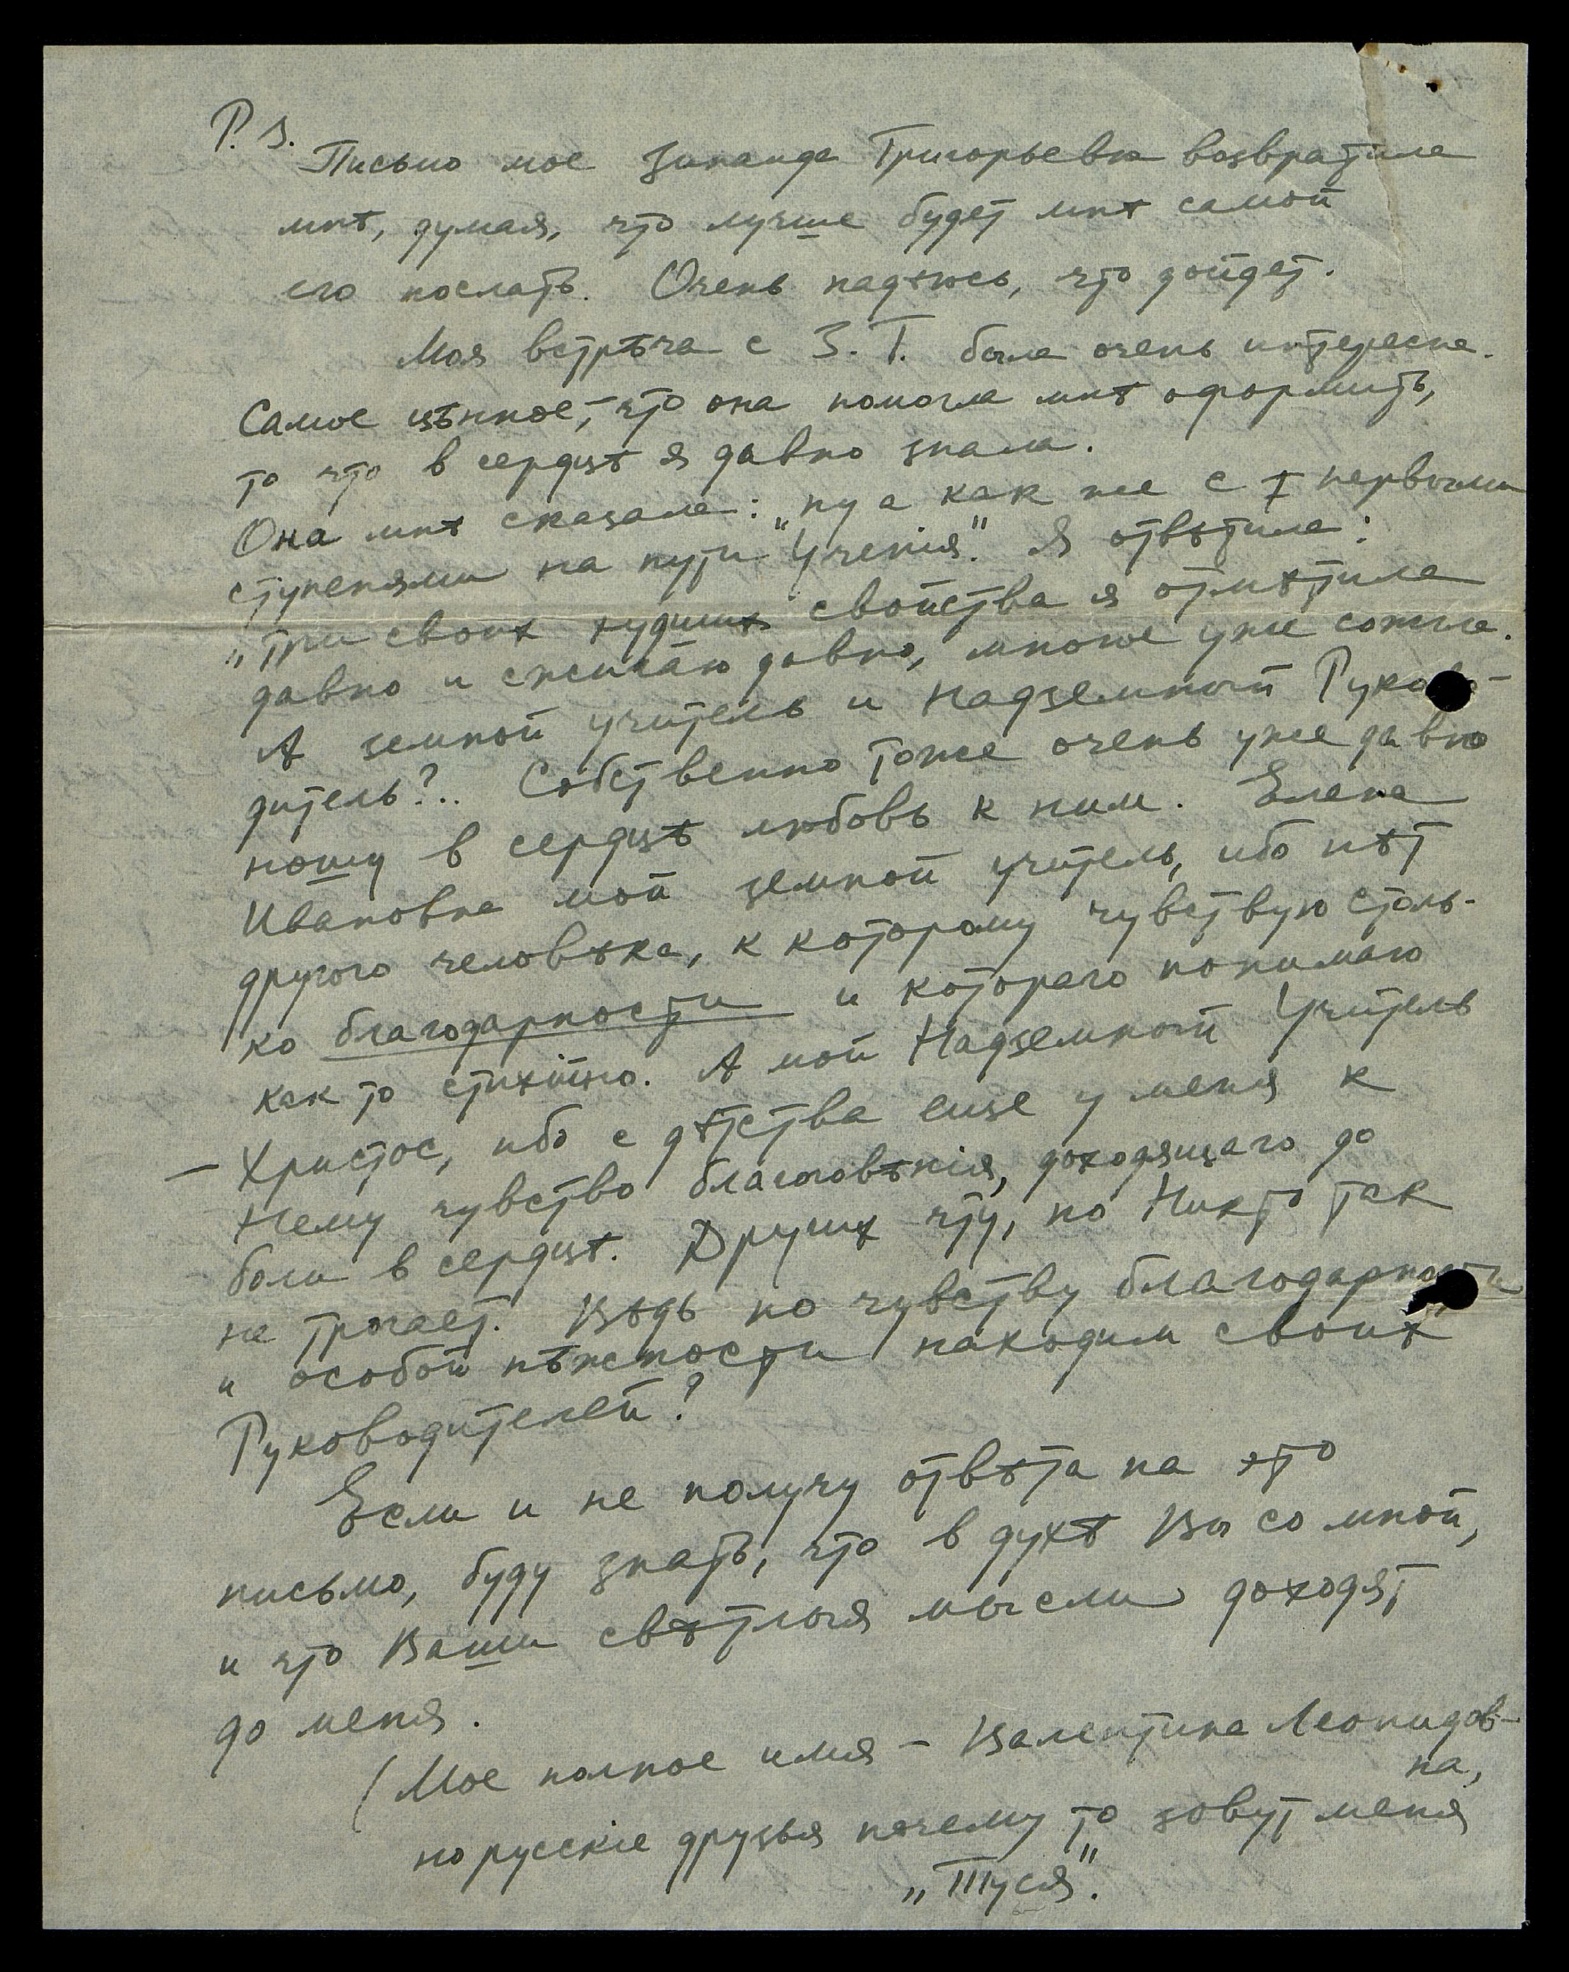 P. S.
Письмо мое Зинаида Григорьевна возвратила
мнѣ, думая, что лучше будет мнѣ самой
его послать. Очень надѣюсь, что дойдет.
Моя встрѣча с З. Г. была очень интересна.
Самое цѣнное, – что она помогла мнѣ оформить,
то что в сердцѣ я давно знала.
Она мнѣ сказала: „ну а как же с первыми
ступенями на пути "Ученія". Я отвѣтила:
„три своих худших свойства я отмѣтила
давно и сжигаю давно, многое уже сожгла.
А земной учитель и Надземный Руково-
дитель?.. Собственно тоже очень уже давно
ношу в сердцѣ любовь к ним. Елена
Ивановна мой земной учитель, ибо нѣт
другого человѣка, к которому чувствую столь-
ко благодарности и котораго понимаю
как то стихійно. А мой Надземный Учитель
– Христос, ибо с дѣтства еще у меня к
Нему чувство благоговѣнія, доходящаго до
боли в сердцѣ. Других чту, но Никто так
не трогает. Вѣдь по чувству благодарности
и особой нѣжности находим своих
Руководителей?
Если и не получу отвѣта на это
письмо, буду знать, что в духѣ Вы со мной,
и что Ваши свѣтлыя мысли доходят
до меня.
(Мое полное имя – Валентина Леонидов-
на,
но русскіе друзья почему то зовут меня
„Туся".